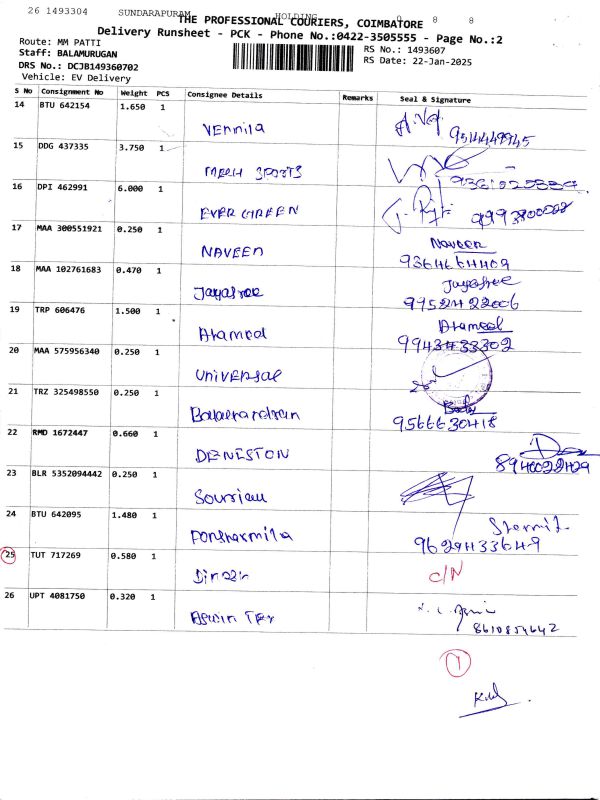 26 1493304 SUNDARAPURAM HOLDING 0 0 0
THE PROFESSIONAL COURIERS, COIMBATORE
Delivery Runsheet - PCK - Phone No.:0422-3505555 - Page No.:2
Route: MM PATTI
RS No.: 1493607
Staff: BALAMURUGAN
RS Date: 22-Jan-2025
DRS No.: DCJB149360702
Vehicle: EV Delivery
S No Consignment No Weight PCS Consignee Details Remarks Seal & Signature
14 BTU 642154 1.650 1
Vennila
15 DDG 437335 3.750 1
MECH SPORTS
16 DPI 462991 6.000 1
EVER GREEN
17 MAA 300551921 0.250 1 Naveen
NAVEEN 9364664409
18 MAA 102761683 0.470 1 Jayashree
Jayashree 9952422006
19 TRP 606476 1.500 1
9943433302
20 MAA 575956340 0.250 1
UNIVERSAL
21 TRZ 325498550 0.250 1
9566630418
22 RMD 1672447 0.660 1
DENESTON 8940022429
23 BLR 5352094442 0.250 1
24 BTU 642095 1.480 1
Ponsharmila 9629433649
25 TUT 717269 0.580 1
C/N
26 UPT 4081750 0.320 1
8610854642
1